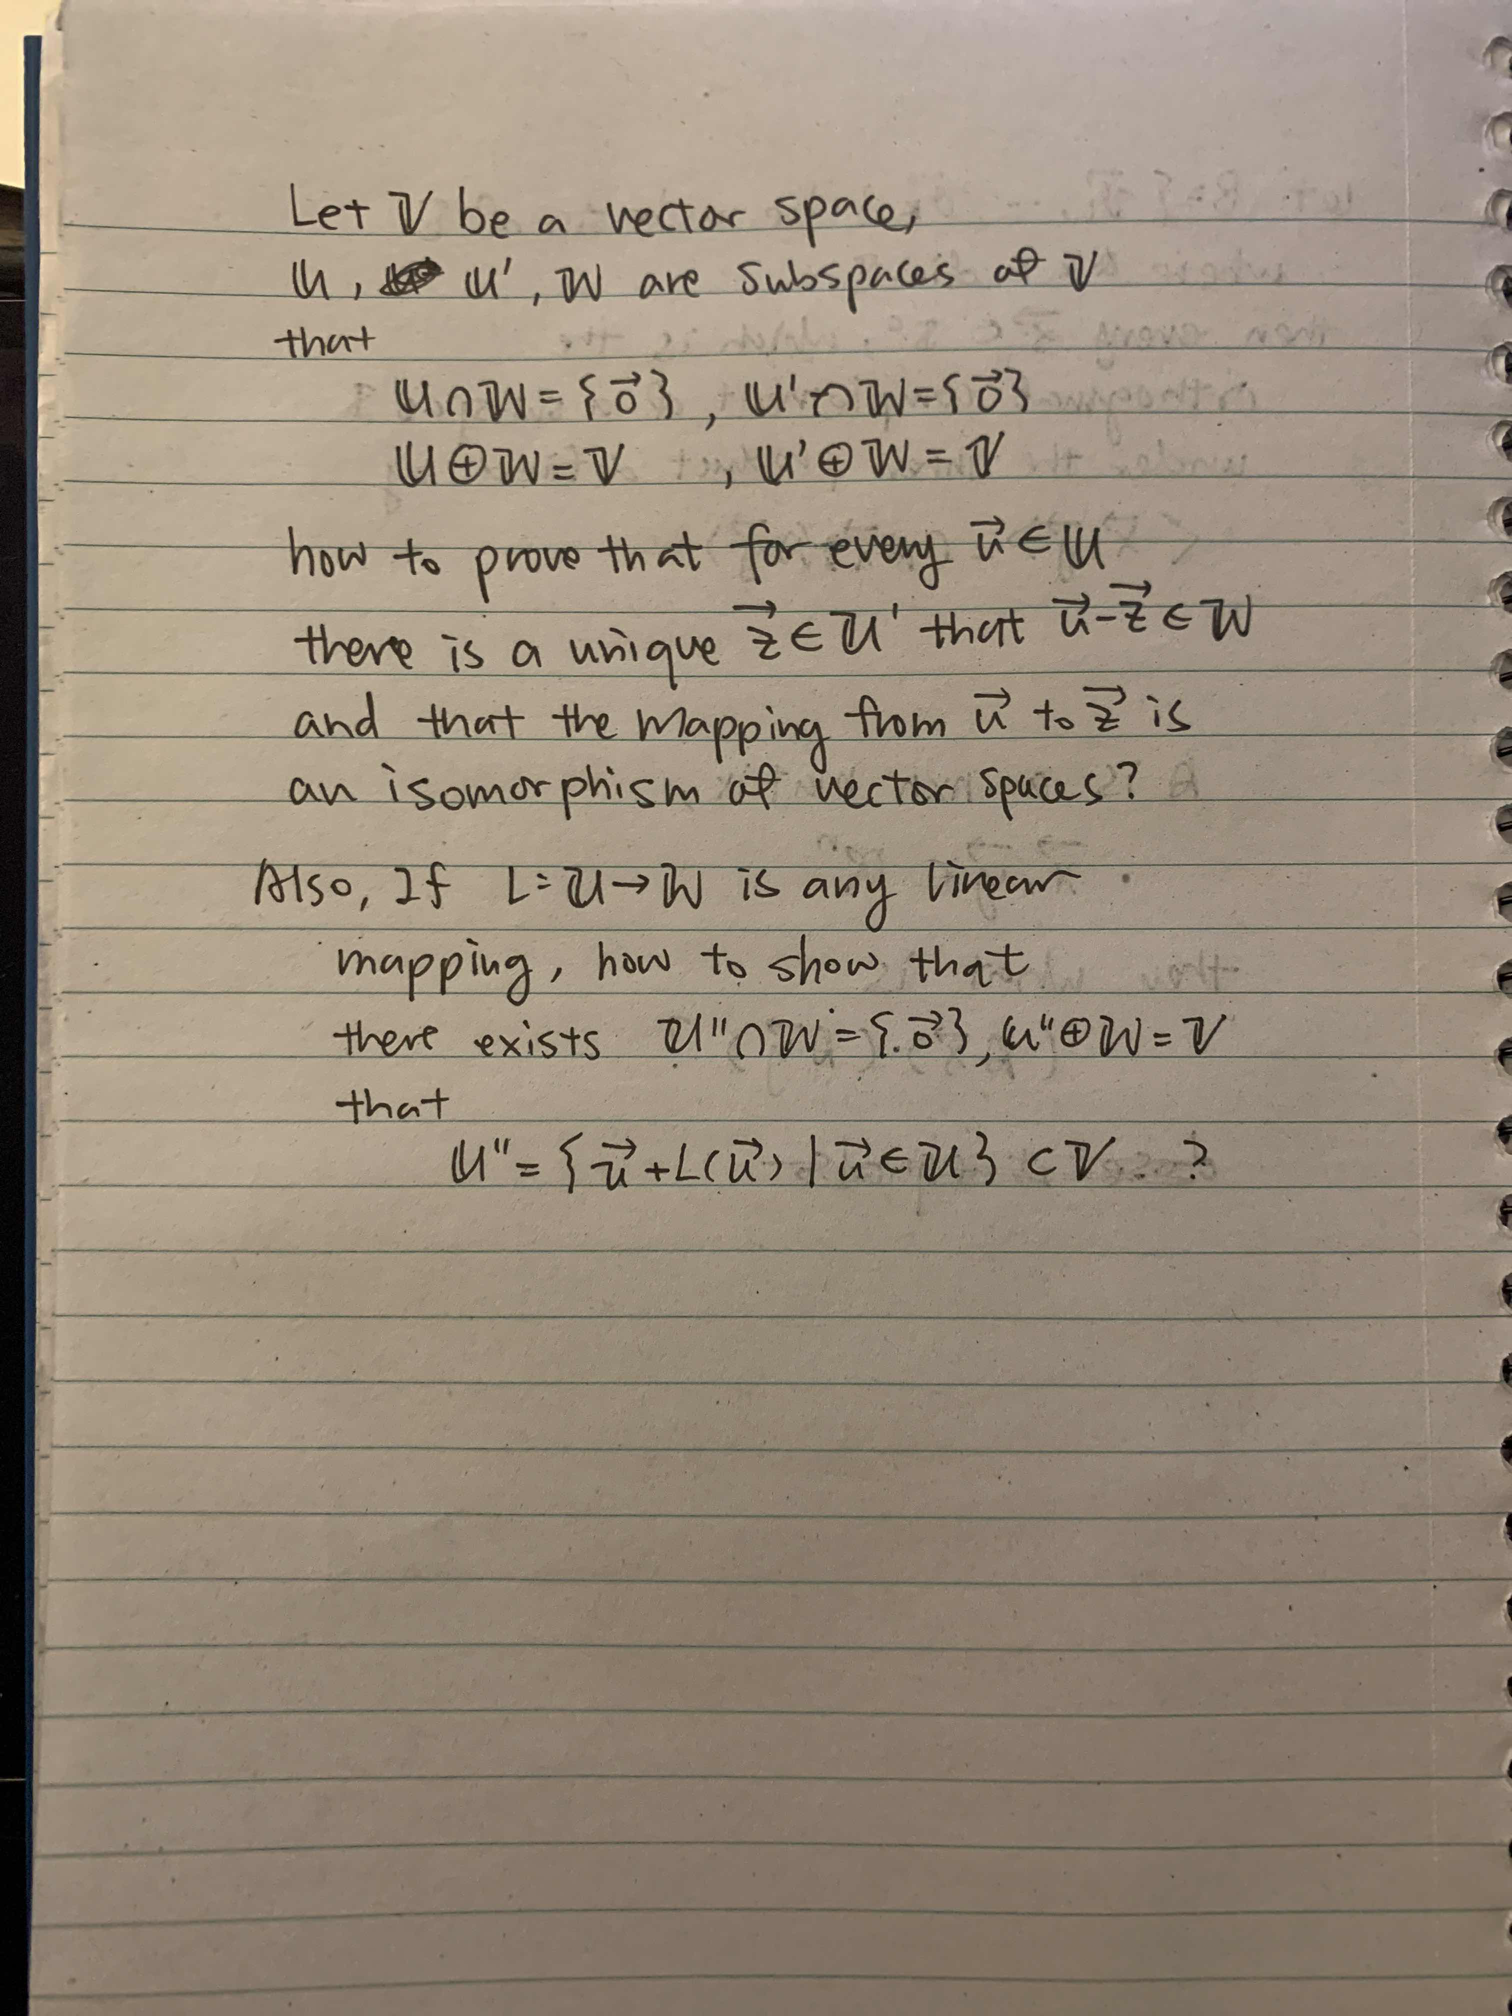 Let 𝕍 be a vector space,
𝕌, 𝕌', 𝕎 are subspaces of 𝕍
that
𝕌∩𝕎={0⃗}, 𝕌'∩𝕎={0⃗}
𝕌⊕𝕎=𝕍, 𝕌'⊕𝕎=𝕍
how to prove that for every u⃗∈𝕌
there is a unique z⃗∈𝕌' that u⃗-z⃗∈𝕎
and that the mapping from u⃗ to z⃗ is
an isomorphism of vector spaces?
Also, If L:𝕌→𝕎 is any linear
mapping, how to show that
there exists 𝕌''∩𝕎={0⃗}, 𝕌''⊕𝕎=𝕍
that
𝕌''={u⃗+L(u⃗)|u⃗∈𝕌}⊂𝕍 ?